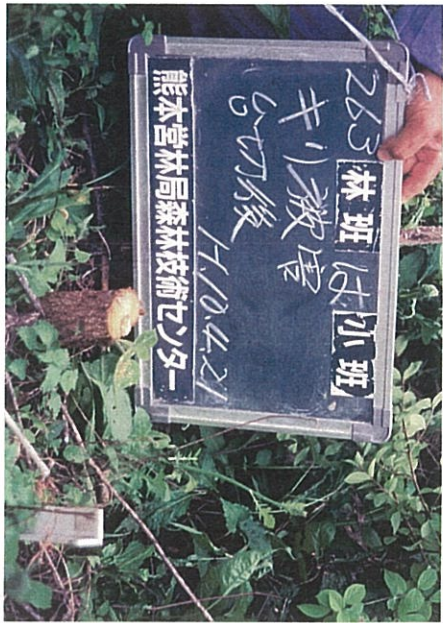 263 林班 は 小班
キリ被害
台切後
H.10.4.21
熊本営林局森林技術センター